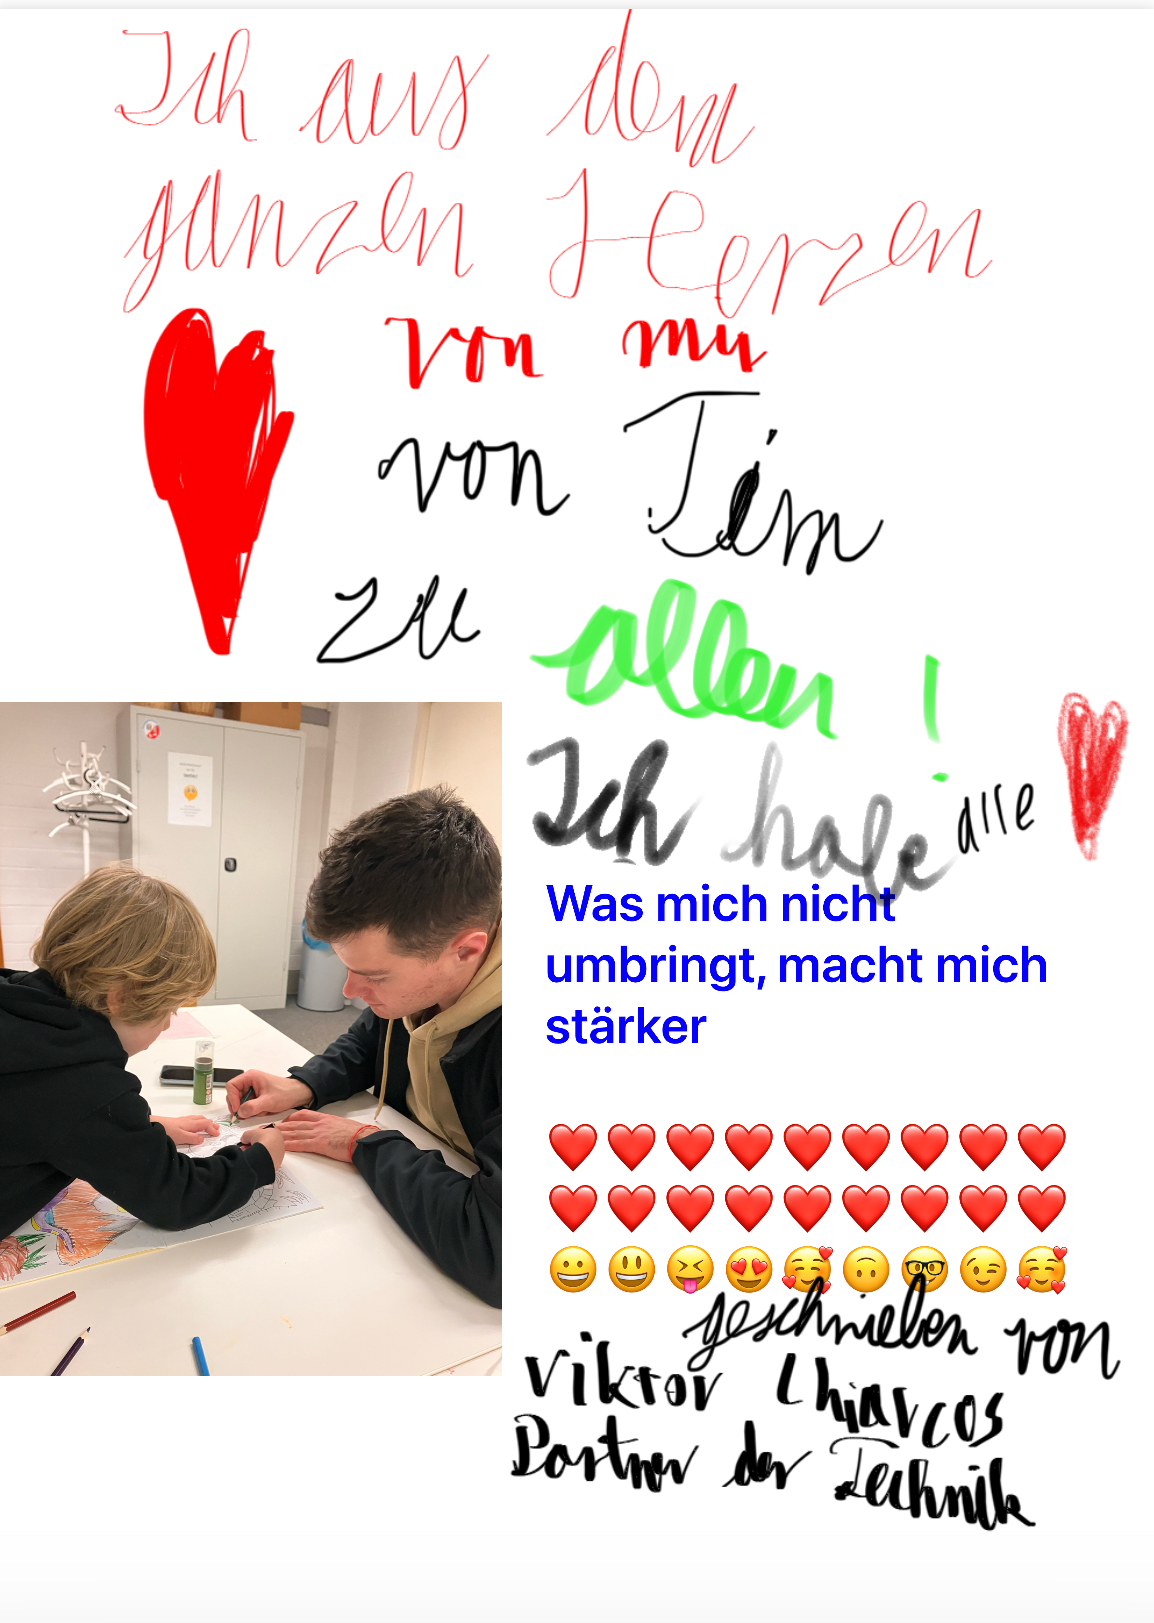 Ich aus dem
ganzen Herzen
von mir
von Tim
zu allen!
Ich habe alle
Was mich nicht
umbringt, macht mich
stärker
❤️❤️❤️❤️❤️❤️❤️❤️❤️
❤️❤️❤️❤️❤️❤️❤️❤️❤️
😀😃😝😍🥰🙃🤓😉🥰
geschrieben von
Viktor Chiarcos
Partner der Technik